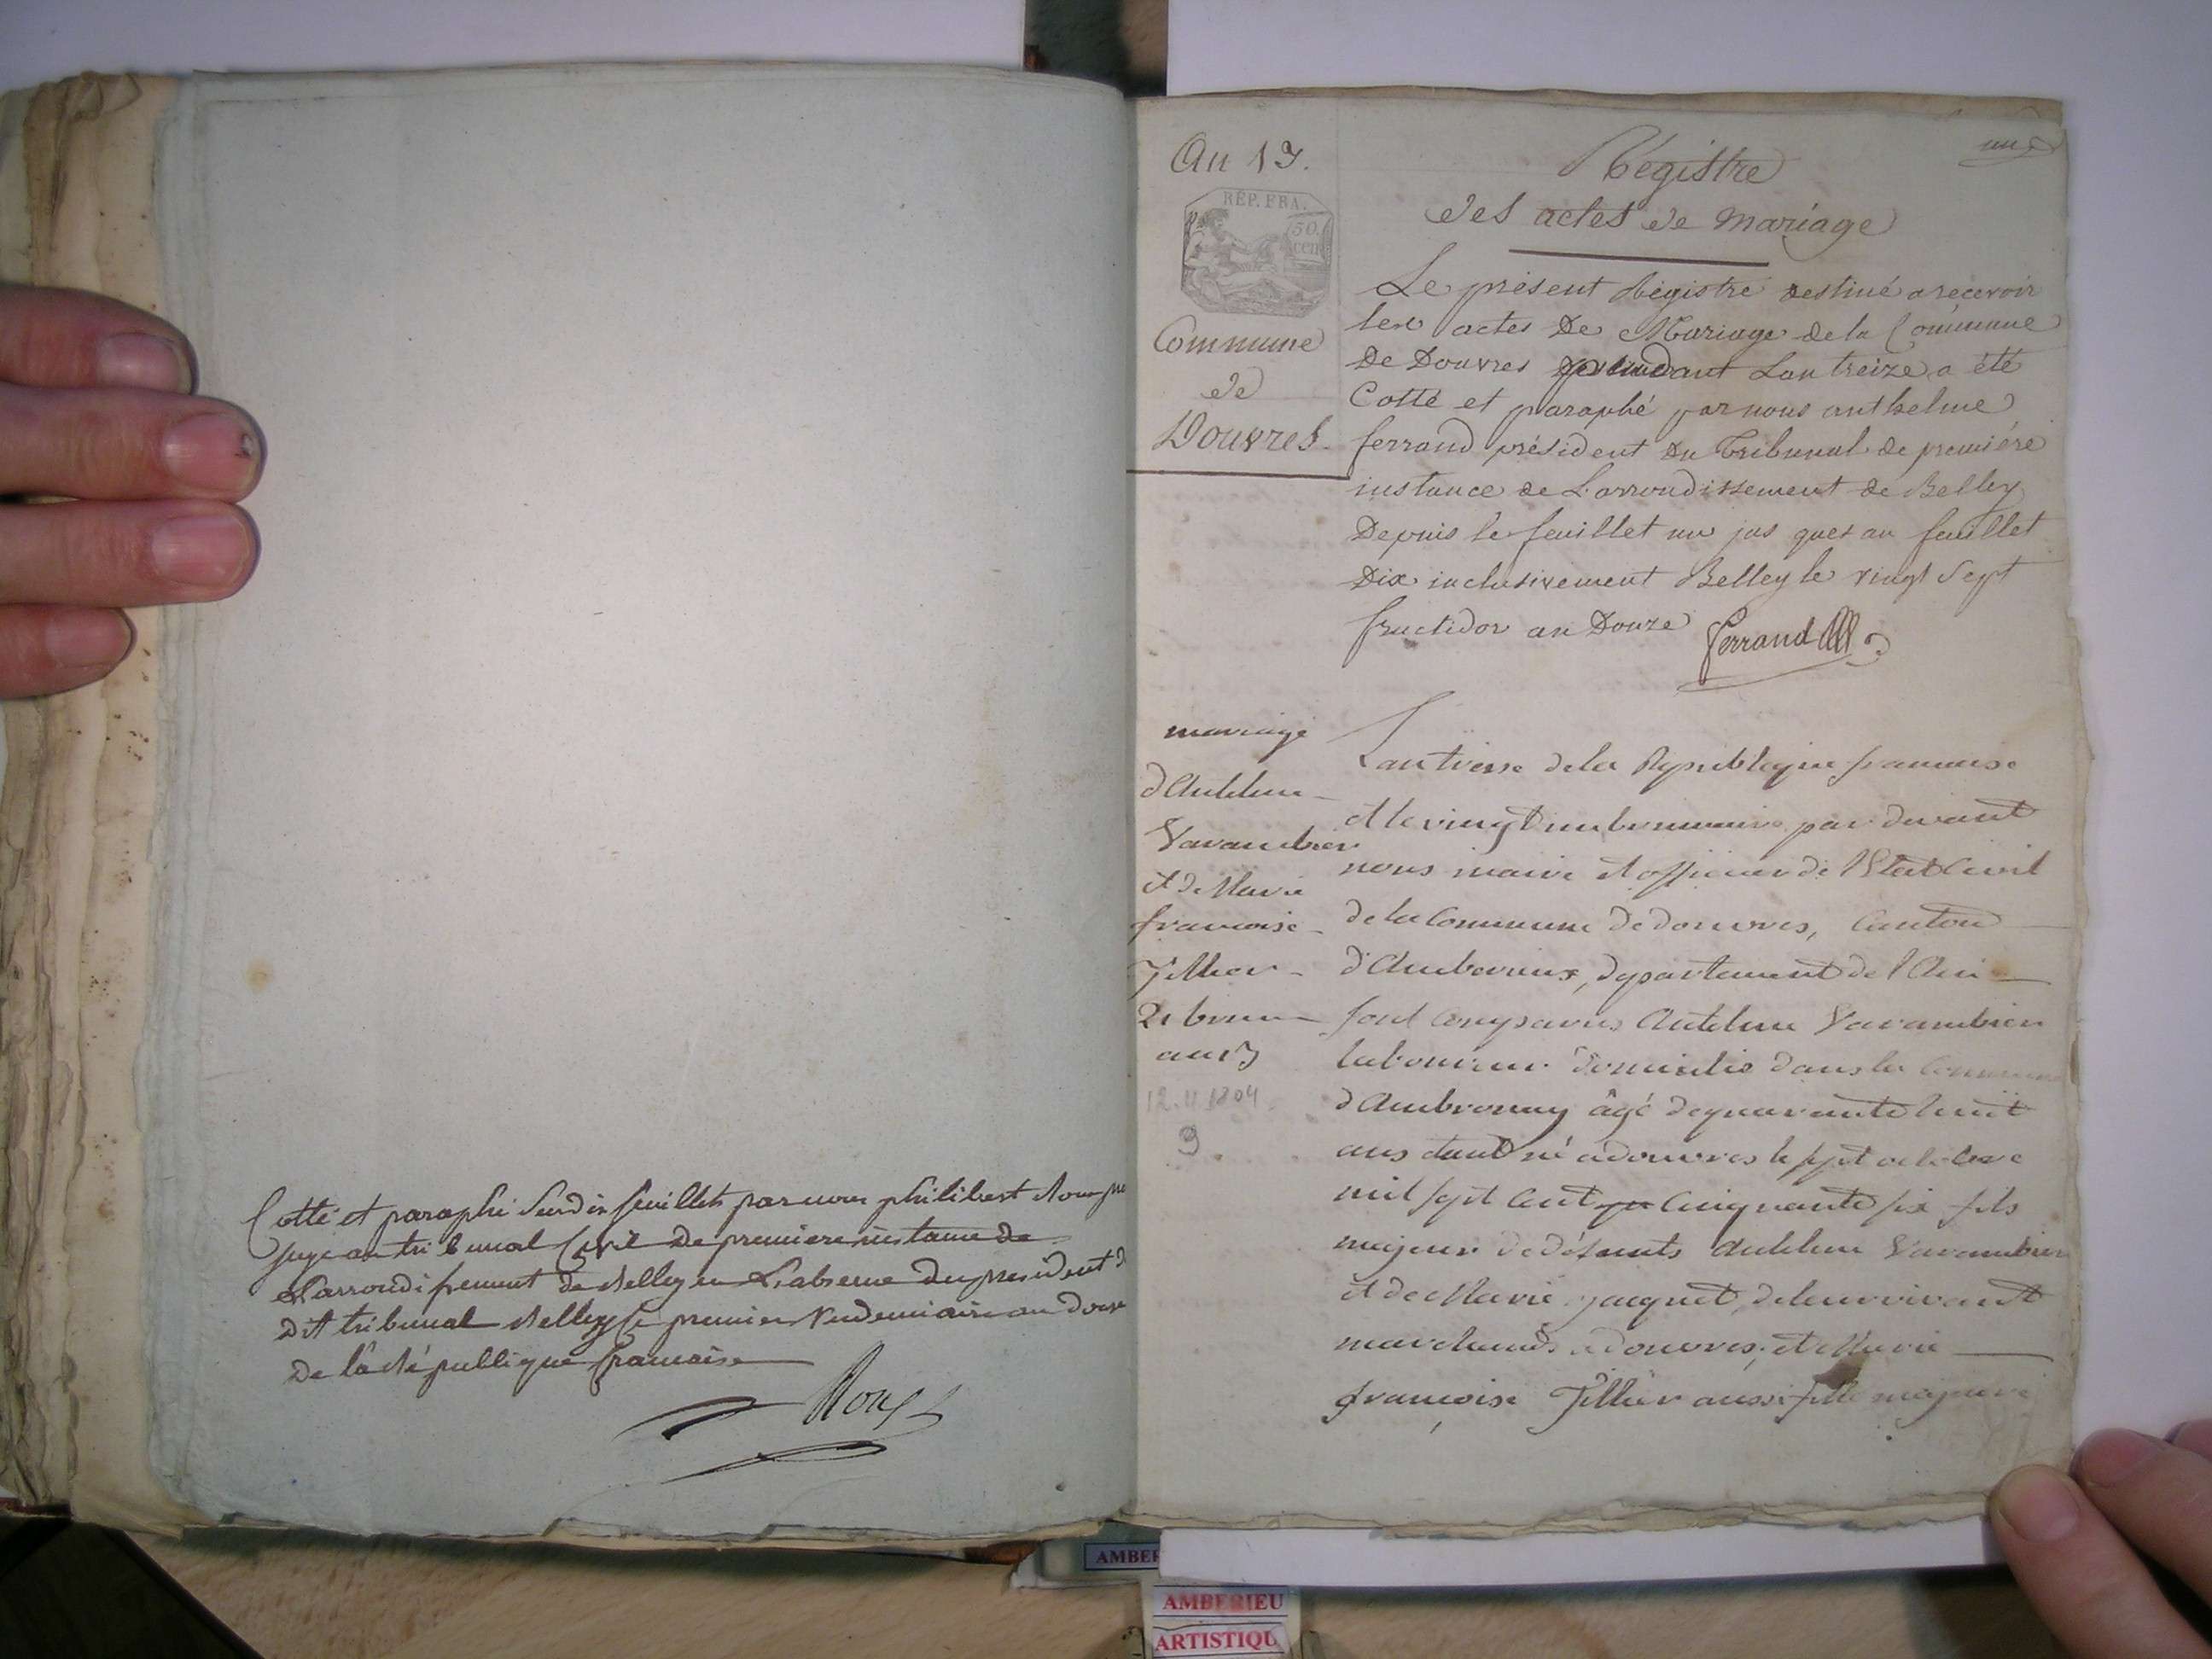 Cotté et paraphé sur dix feuillets par nous philibert
juge au tribunal Civil de premiere instance de
L'arrondissement de Belley en L'absence du president
dit tribunal Belley le premier Vendemiaire an
De la République francaise
An 13.
REP. FRA.
50.
cen
Commune
de
Douvres
une
Régistre
des actes de Mariage
Le présent Régistre destiné a récevoir
les actes de Mariage de la Commune
De Douvres pendant L'an treize a été
Cotté et paraphé par nous anthelme
ferrand président du Tribunal de premiére
instance de L'arrondissement de Belley
Depuis le feuillet un jus ques au feuillet
Dix inclusivement Belley le vingt Sept
fructidor an Douze ferrand
mariage
d'Antelme
Varambier
et de Marie
francoise
Tillier
21 brum
an 13
12.11.1804
9
L'an treise de la République francaise
et le vingt un brumaire par devant
nous maire et officier de l'Etat Civil
de la Commune de douvres, Canton
d'Amberieux, departement de l'Ain
sont comparus Antelme Varambier
laboureur domicilié dans la Commune
d'Ambronay âgé de quarante huit
ans étant né à douvres le sept octobre
mil sept cent cinquante six fils
majeur de défunts Antelme Varambier
et de Marie jacquet, de leur vivant
marchands à douvres; et Marie
françoise Tillier aussi fille majeure
AMBERIEU
ARTISTIQU